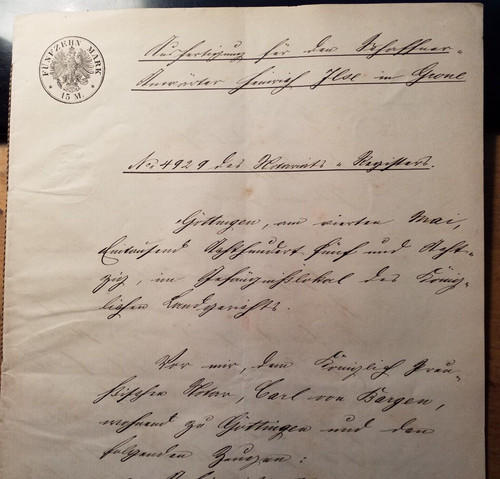 FÜNFZEHN MARK
15 M.
Ausfertigung für den Schaffner-
Anwärter Heinrich Ilse in Grone
No 4929 des Notariats-Registers.
Göttingen, am vierten Mai,
Eintausend Achthundert Fünf und Acht-
zig, im Geschäftslokal des König-
lichen Landgerichts.
Vor mir, dem Königlich Preu-
ßischen Notar, Carl von Bargen,
wohnend zu Göttingen und den
folgenden Zeugen: